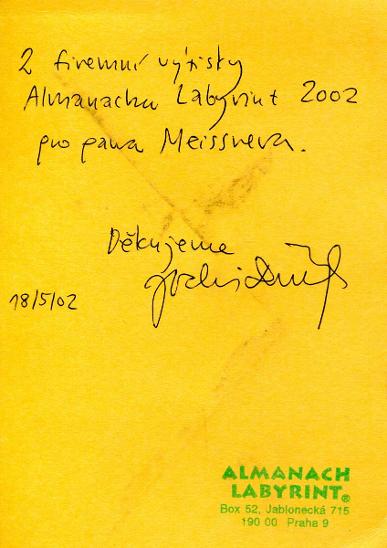 2 firemní výtisky
Almanachu Labyrint 2002
pro pana Meissnera.
Děkujeme
18/5/02
ALMANACH
LABYRINT®
Box 52, Jablonecká 715
190 00 Praha 9